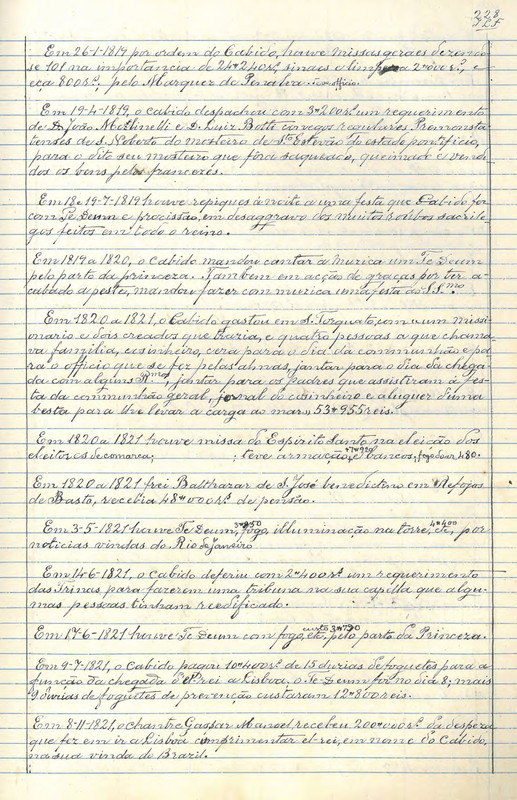 228
Em 26-1-1819 por ordem do Cabido, houve missas geraes dizendo
se 101 na importancia de 24#240rs, sinaes e limpeza 2#000rs, e
eça 800rs, pelo Marquez de Penalva
Em 19-4-1819, o cabido despachou com 3#200rs um requerimento
de D. João Molinetti e D. Luiz Botti conegos regulares Premonsta-
tenses de S. Noberto do mosteiro de Sto Estevão do estado pontificio,
para o dito seu mosteiro que fôra saqueado, queimado e vendi
dos os bens pelos francezes.
Em 18 e 19-7-1819 houve repiques á noite a uma festa que o Cabido fez
com Te Deum e procissão, em desagravo dos muitos roubos sacrile-
gos feitos em todo o reino.
Em 1819 a 1820, o Cabido mandou cantar á muzica um Te Deum
pelo parto da princeza. Tambem em acção de graças por ter a-
cabado a peste, mandou fazer com muzica uma festa ao S.S.mo.
Em 1820 a 1821, o Cabido gastou em S. Torquato, com um missi-
onario e dois creados que trazia, e quatro pessoas a que chama-
va familia, cosinheiro, cera para o dia da communhão e pa
ra o officio que se fez pelas almas, jantar para o dia da chega-
da com alguns Rmos, jantar para os padres que assistiram á fes-
ta da communhão geral, jornal do cosinheiro e aluguer d'uma
besta para lhe levar a carga ao mar, 53#955 reis.
Em 1820 a 1821 houve missa do Espirito Santo na eleição dos
eleitores de comarca; ; teve armação, 7#920 e bancos, 480.
Em 1820 a 1821 frei Balthazar de S. José benedictino em Refojos
de Basto, recebia 48#000rs de pensão.
Em 3-5-1821 houve Te Deum, fogo, illuminação na torre, etc, 4#400 por
noticias vindas do Rio de Janeiro
Em 14-6-1821, o Cabido deferiu com 2#400rs um requerimento
das Trinas para fazerem uma tribuna na sua capella que algu-
mas pessoas tinham reedificado.
Em 17-6-1821 houve Te Deum com fogo, etc, custo pelo parto da Princeza.
Em 9-7-1821, o Cabido pagou 10#400rs de 15 duzias de foguetes para a
função da chegada d'el-rei a Lisboa. o Te Deum foi no dia 8; mais
9 duzias de foguetes de prevenção custaram 12#800 reis.
Em 8-11-1821, o chantre Gaspar Manoel recebeu 200#000rs da despeza
que fez em ir a Lisboa comprimentar el-rei, em nome do Cabido,
na sua vinda do Brazil.